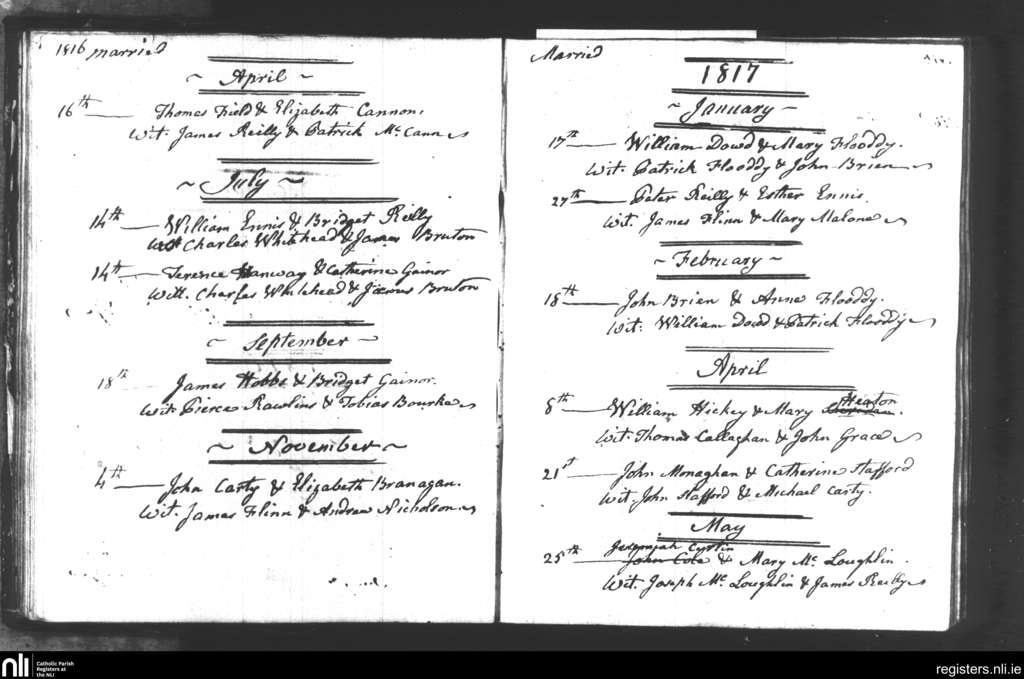 1816 married
~ April ~
16th — Thomas Field & Elizabeth Cannon.
Wit. James Reilly & Patrick McCann
~ July ~
14th — William Ennis & Bridget Reilly
Charles Whitehead & James Bruton
14th — Terence Hanway & Catherine Gainor
Witt. Charles Whitehead & James Bruton
~ September ~
18th James Hobbs & Bridget Gainor.
Wit. Pierce Rawlins & Tobias Bourke
~ November ~
4th — John Carty & Elizabeth Branagan.
Wit. James Flinn & Andrew Nicholson
Married
1817
~ January ~
17th — William Dowd & Mary Flooddy.
Wit. Patrick Flooddy & John Brien
27th — Peter Reilly & Esther Ennis.
Wit. James Flinn & Mary Malone
~ February ~
18th — John Brien & Anne Flooddy.
Wit: William Dowd & Patrick Flooddy
April
Heaton
8th — William Hickey & Mary
Wit. Thomas Callaghan & John Grace
21st — John Monaghan & Catherine Stafford
Wit. John Stafford & Michael Carty.
May
Jeremiah
25th — John Cole & Mary Mc Loughlin.
Wit. Joseph Mc Loughlin & James Reilly
nli
Catholic Parish
Registers at
the NLI
registers.nli.ie